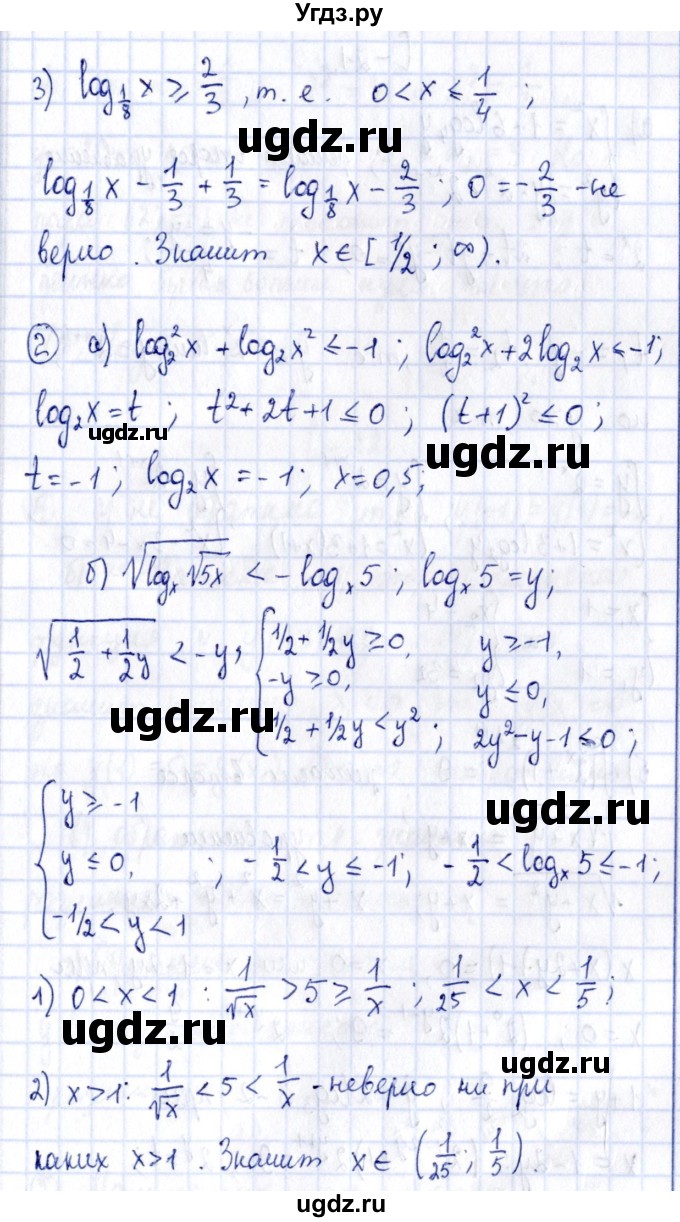 Угдз.ру
3) log_{1/8} x ≥ 2/3 , т. е. 0 < x ≤ 1/4 ;
ugdz.ru
log_{1/8} x - 1/3 + 1/3 = log_{1/8} x - 2/3 ; 0 = - 2/3 - не
верно . Значит x ∈ [ 1/2 ; ∞ ).
② а) log₂² x + log₂ x² ≤ -1 ; log₂² x + 2 log₂ x ≤ -1;
log₂ x = t ; t² + 2t + 1 ≤ 0 ; (t+1)² ≤ 0 ;
ugdz.ru
ugdz.ru
t = -1 ; log₂ x = -1 ; x = 0,5;
б) √(log_x √(5x)) < - log_x 5 ; log_x 5 = y;
√(1/2 + 1/2y) < -y, { 1/2 + 1/2 y ≥ 0, y ≥ -1,
-y ≥ 0, y ≤ 0,
ugdz.ru
1/2 + 1/2 y < y² ; 2y² - y - 1 ≤ 0 ;
{ y ≥ -1
ugdz.ru
y ≤ 0, ; - 1/2 < y ≤ -1; - 1/2 < log_x 5 ≤ -1;
-1/2 < y < 1
1) 0 < x < 1 : 1/√x > 5 ≥ 1/x ; 1/25 < x < 1/5 ;
ugdz.ru
2) x > 1: 1/√x < 5 < 1/x - неверно ни при
ugdz.ru
каких x > 1 . Значит x ∈ ( 1/25 ; 1/5 ) .
ugdz.ru